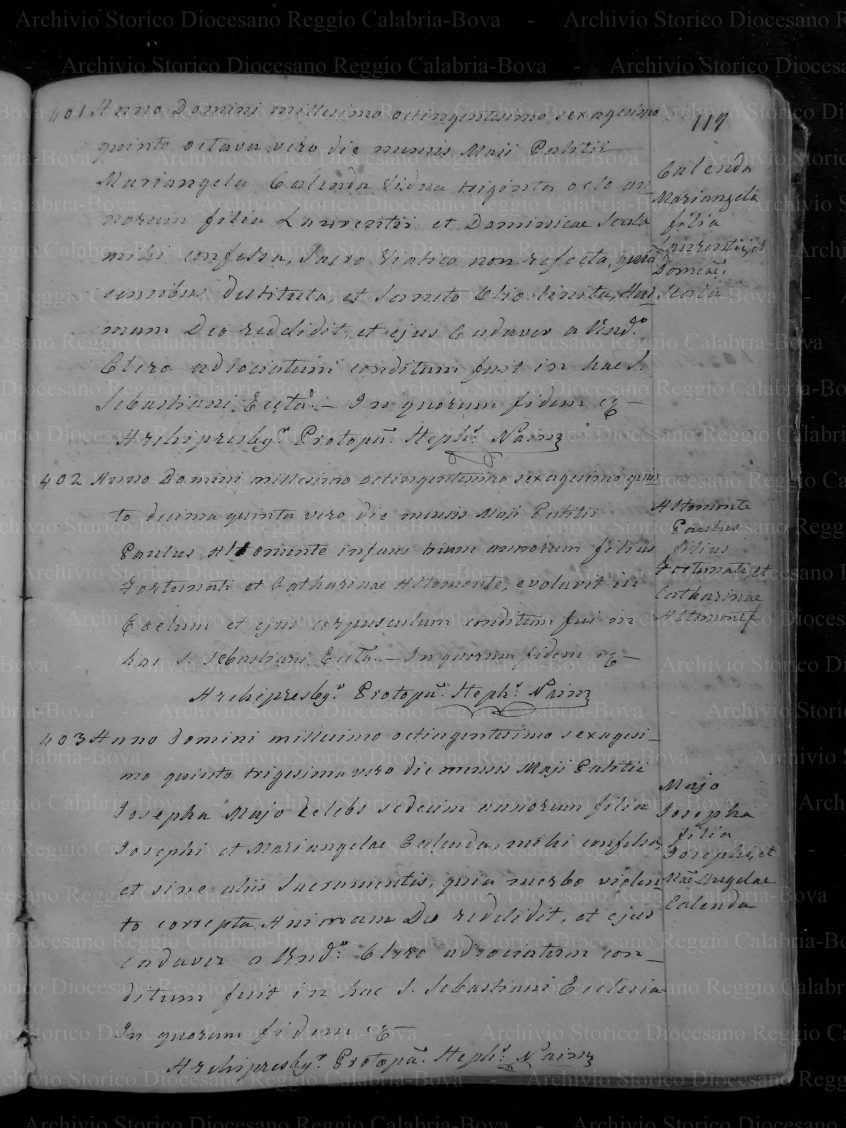 119
401 Anno Domini millesimo octingentesimo sexagesimo
quinto octava vero die mensis Maji Palitii
Mariangela Calenda Vidua triginta octo an
norum filia Laurentii et Dominicae Scala
mihi confessa, Sacro Viatico non refecta, quia
sensibus destituta, et Sancto Olio linita, Ani
mam Deo reddidit, et ejus Cadaver a Rndo
Clero adsociatum conditum fuit in hac S.
Sebastiani Eccta. – In quorum fidem &
Archipresbyr. Protopa. Steph. Nainz
Calenda
Mariangela
filia
Laurentii, et
Domcae.
Scala
402 Anno Domini millesimo octingentesimo sexagesimo quin
to decima quinta vero die mensis Maji Palitii
Paulus Altomonte infans trium annorum filius
Fortunati et Catharinae Altomonte, evolavit in
Coelum et ejus corpusculum conditum fui in
hac S. Sebastiani Eccta. – In quorum fidem &
Archipresbyr. Protopa. Steph. Nainz
Altomonte
Paulus
filius
Fortunati, et
Catharinae
Altomonte
403 Anno Domini millesimo octingentesimo sexagesi
mo quinto trigesima vero die mensis Maji Palitii
Josepha Majo Celebs sedecim annorum filia
Josephi et Mariangelae Calenda, mihi confessa
et sine aliis Sacramentis, quia morbo violen
to correpta, Animam Deo reddidit, et ejus
cadaver a Rndo. Clero adsociatum con
ditum fuit in hac S. Sebastiani Ecclesia
In quorum fidem &
Archipresbyr. Protopa. Steph. Nainz
Majo
Josepha
filia
Josephi, et
Mae. Angelae
Calenda
Archivio Storico Diocesano Reggio Calabria-Bova